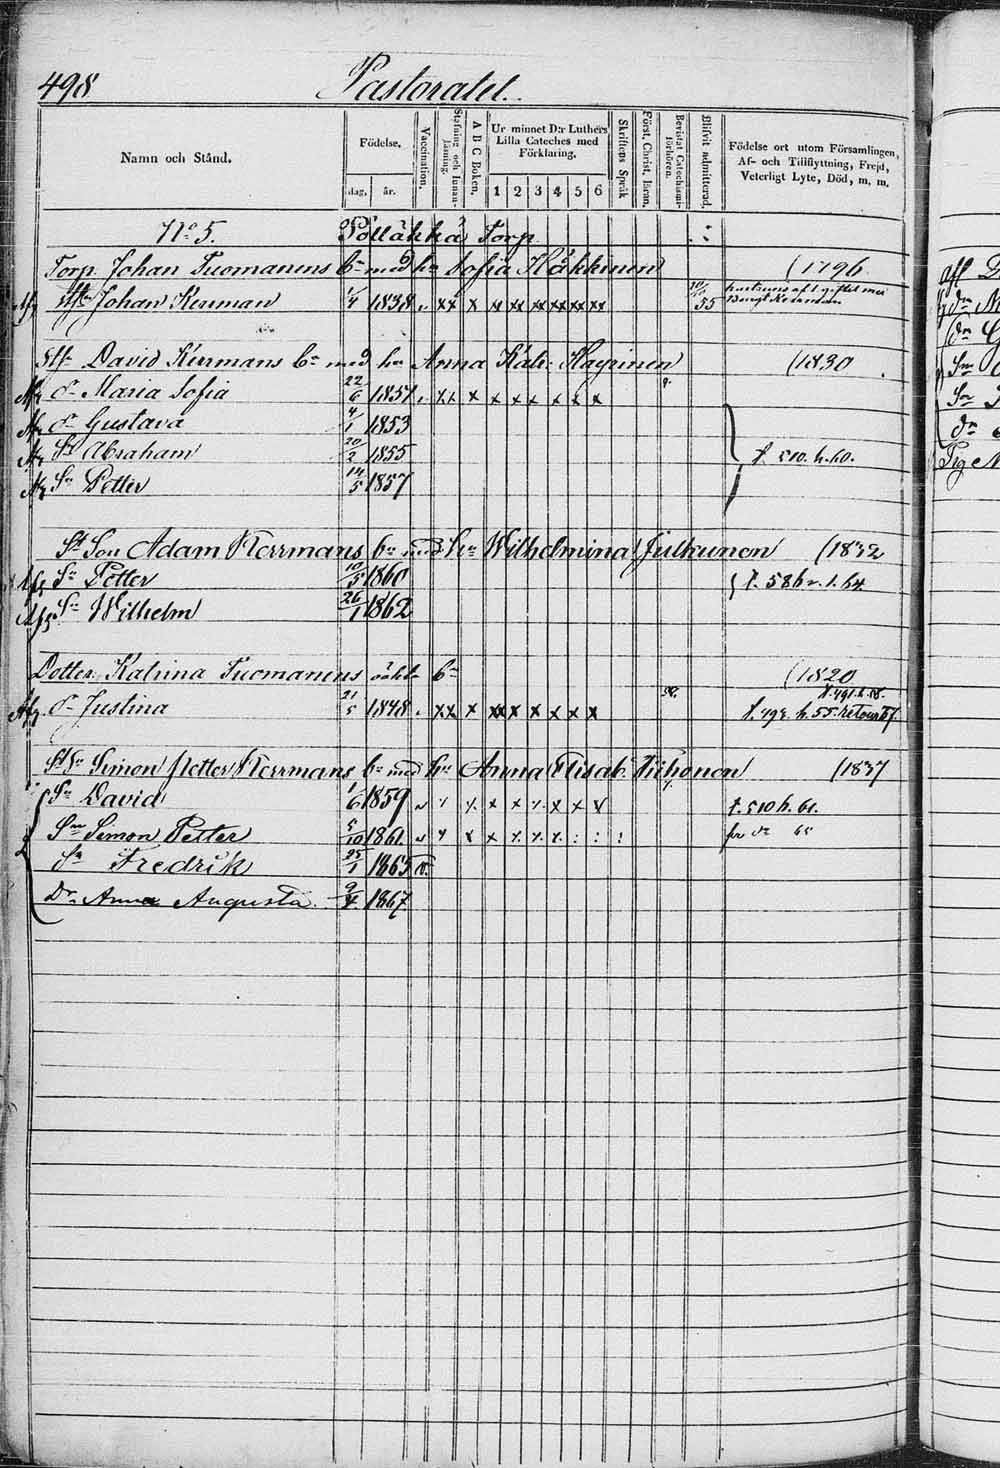 498 Pastoratet.
Namn och Stånd.
Födelse,
dag, år.
Vaccination.
Stafning och Innanläsning.
A B C Boken.
Ur minnet D:r Luthers Lilla Cateches med Förklaring.
1 2 3 4 5 6
Skriftens Språk
Först. Christ. läran.
Bevistat Catechismiförhören.
Blifvit admitterad.
Födelse ort utom Församlingen, Af- och Tillflyttning, Frejd, Veterligt Lyte, Död, m. m.
No 5. Pölläkkä Torp
Torp. Johan Tuomanens bn med hu Sofia Häkkinen (1796
Johan Kerman 1/4 1838 x x x x x x x x x 55
David Kermans bn med hu Anna Katr. Kaurinen (1830
Afg dr Maria Sofia 22/6 1851 x x x x x x x x x
Afg dr Gustava 4/1 1853
Afg Sn Abraham 20/2 1855 f. 510. h. 60.
Afg Sn Petter 14/5 1857
St Son Adam Kerrmans bn med hu Wilhelmina Julkunen (1832
Afg Sn Petter 10/5 1860 f. 586 v. 1. 64.
Afg Sn Wilhelm 26/1 1862
Dotter Katrina Tuomanens oäkta bn (1820
f. 491. h. 58.
Afg. dr Justina 21/5 1848 x x x x x x x x x f. 492. h. 55. retour 57.
St Sn Simon Petter Kerrmans bn med hu Anna Elisab. Tiihonen (1837
Sn David 1/6 1859 x x x x x x x x f. 510 h. 61.
Sn Simon Petter 5/10 1861. x x x x x x
Sn Fredrik 25/1 1865 v.
Dr Anna Augusta. 9/4 1867.